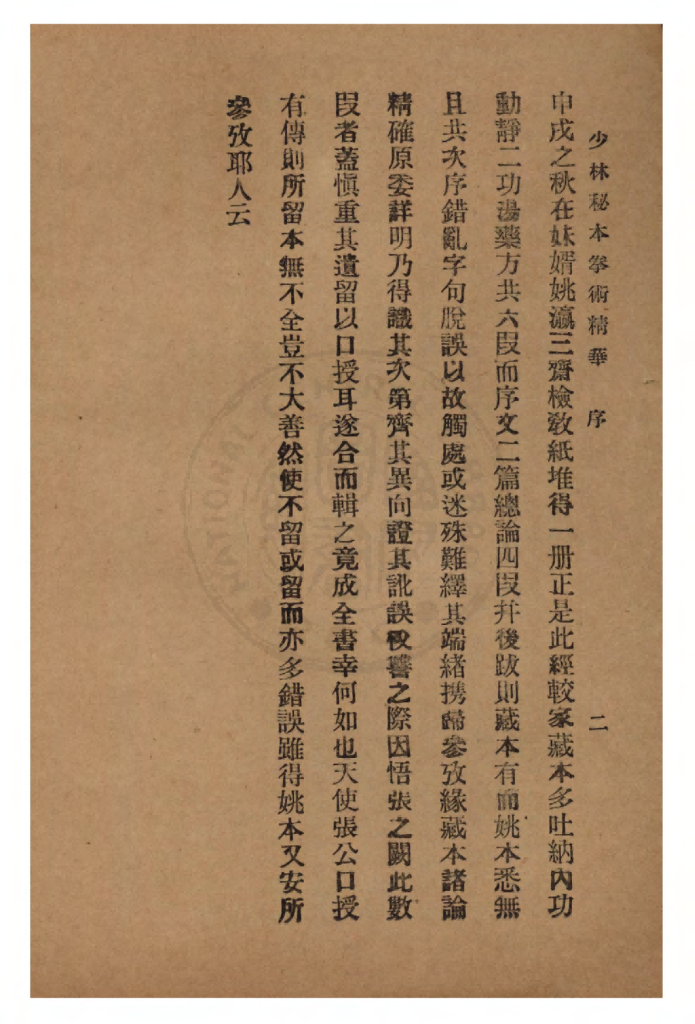 少林秘本拳術精華 序 二
甲戌之秋在妹婿姚瀛三齋檢敎紙堆得一册正是此經較家藏本多吐納內功
動靜二功湯藥方共六段而序文二篇總論四段幷後跋則藏本有而姚本悉無
且共次序錯亂字句脫誤以故觸處或迷殊難繹其端緖携歸參攷緣藏本諸論
精確原委詳明乃得識其次第齊其異向證其訛誤校讐之際因悟張之闕此數
段者蓋愼重其遺留以口授耳遂合而輯之竟成全書幸何如也天使張公口授
有傳則所留本無不全豈不大善然使不留或留而亦多錯誤雖得姚本又安所
參攷耶人云